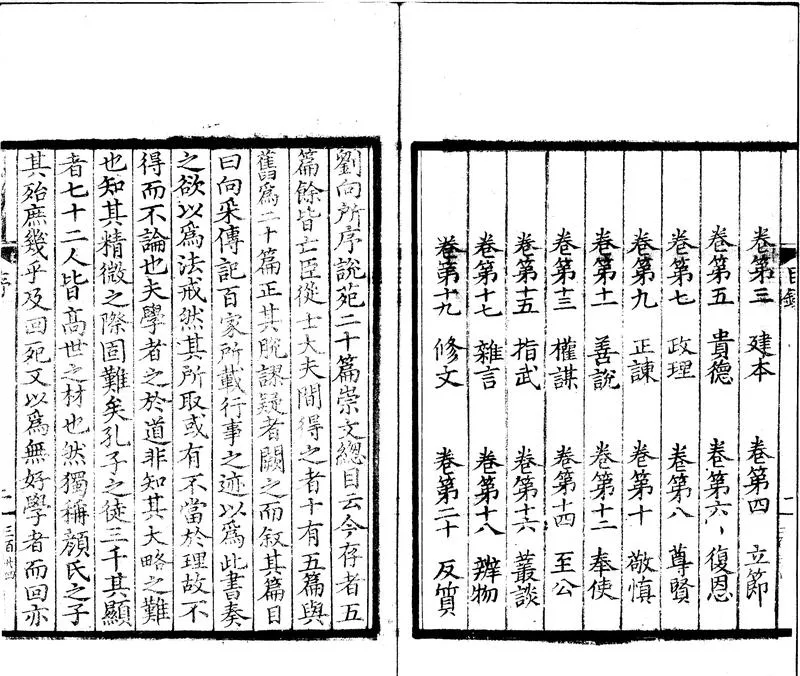 卷第三 建本 卷第四 立節
卷第五 貴德 卷第六 復恩
卷第七 政理 卷第八 尊賢
卷第九 正諫 卷第十 敬慎
卷第十一 善說 卷第十二 奉使
卷第十三 權謀 卷第十四 至公
卷第十五 指武 卷第十六 叢談
卷第十七 雜言 卷第十八 辨物
卷第十九 修文 卷第二十 反質
劉向所序說苑二十篇崇文總目云今存者五
篇餘皆亡臣從士大夫間得之者十有五篇與
舊爲二十篇正其脫謬疑者闕之而叙其篇目
曰向采傳記百家所載行事之迹以爲此書奏
之欲以爲法戒然其所取或有不當於理故不
得而不論也夫學者之於道非知其大略之難
也知其精微之際固難矣孔子之徒三千其顯
者七十二人皆高世之材也然獨稱顏氏之子
其殆庶幾乎及回死又以爲無好學者而回亦